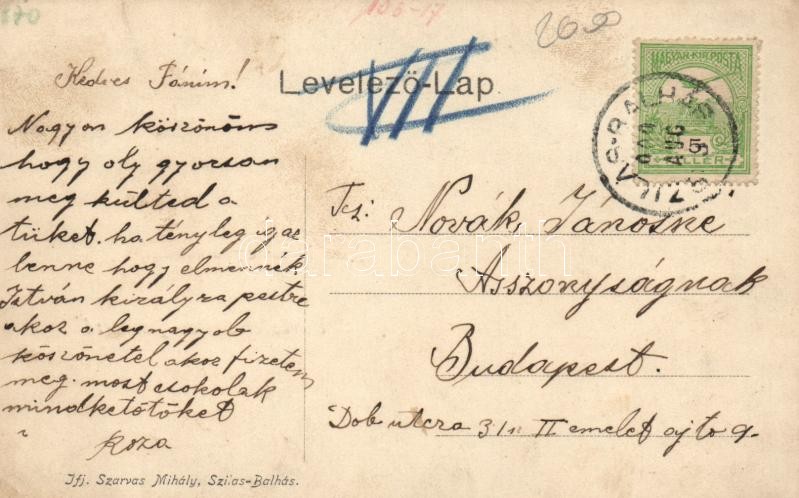 670
156-17
2600
Levelező-Lap
VII
MAGYAR KIR. POSTA
AUG
Kedves Fánim!
Nagyon köszönöm
hogy oly gyorsan
meg külted a
tüket. ha tényleg igaz
lenne hogy elmennék
István királyra pestre
akor a legnagyob
köszönetel akor fizetem
meg. most csokolak
mindketötöket
Roza
Tcz: Novák Jánosné
Asszonyságnak
Budapest.
Dob utcza 31 II emelet ajto 9.
Ifj. Szarvas Mihály, Szilas-Balhás.
darabanth